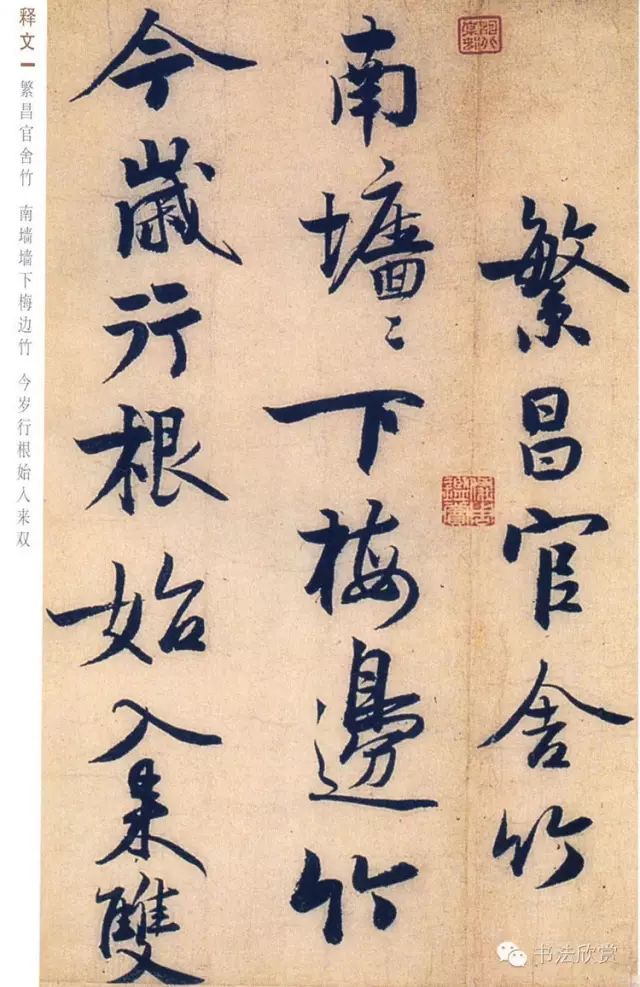 释文
繁昌官舍竹 南墙墙下梅边竹 今岁行根始入来双
繁昌官舍竹
南墻〻下梅邊竹
今歲行根始入来雙
书法欣赏